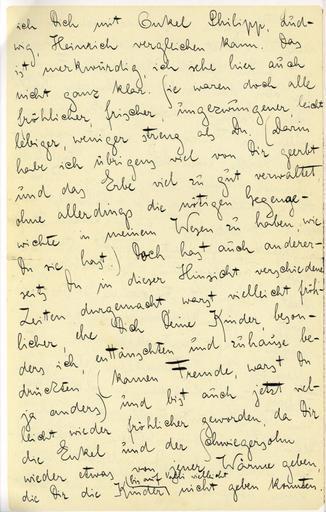 ich Dich mit Onkel Philipp, Lud-
wig, Heinrich vergleichen kann. Das
ist merkwürdig, ich sehe hier auch
nicht ganz klar. Sie waren doch alle
fröhlicher, frischer, ungezwungener, leicht
lebiger, weniger streng als Du. (Darin
habe ich übrigens viel von Dir geerbt
und das Erbe viel zu gut verwaltet
ohne allerdings die nötigen Gegenge-
wichte in meinem Wesen zu haben, wie
Du sie hast.) Doch hast auch anderer-
seits Du in dieser Hinsicht verschiedene
Zeiten durgemacht warst vielleicht fröh-
licher, ehe Dich Deine Kinder, beson-
ders ich, enttäuschten und zuhause be-
drückten (kamen Fremde, warst Du
ja anders) und bist auch jetzt viel-
leicht wieder fröhlicher geworden, da Dir
die Enkel und der Schwiegersohn
wieder etwas von jener Wärme geben,
die Dir die Kinder bis auf Valli vielleicht nicht geben konnten.